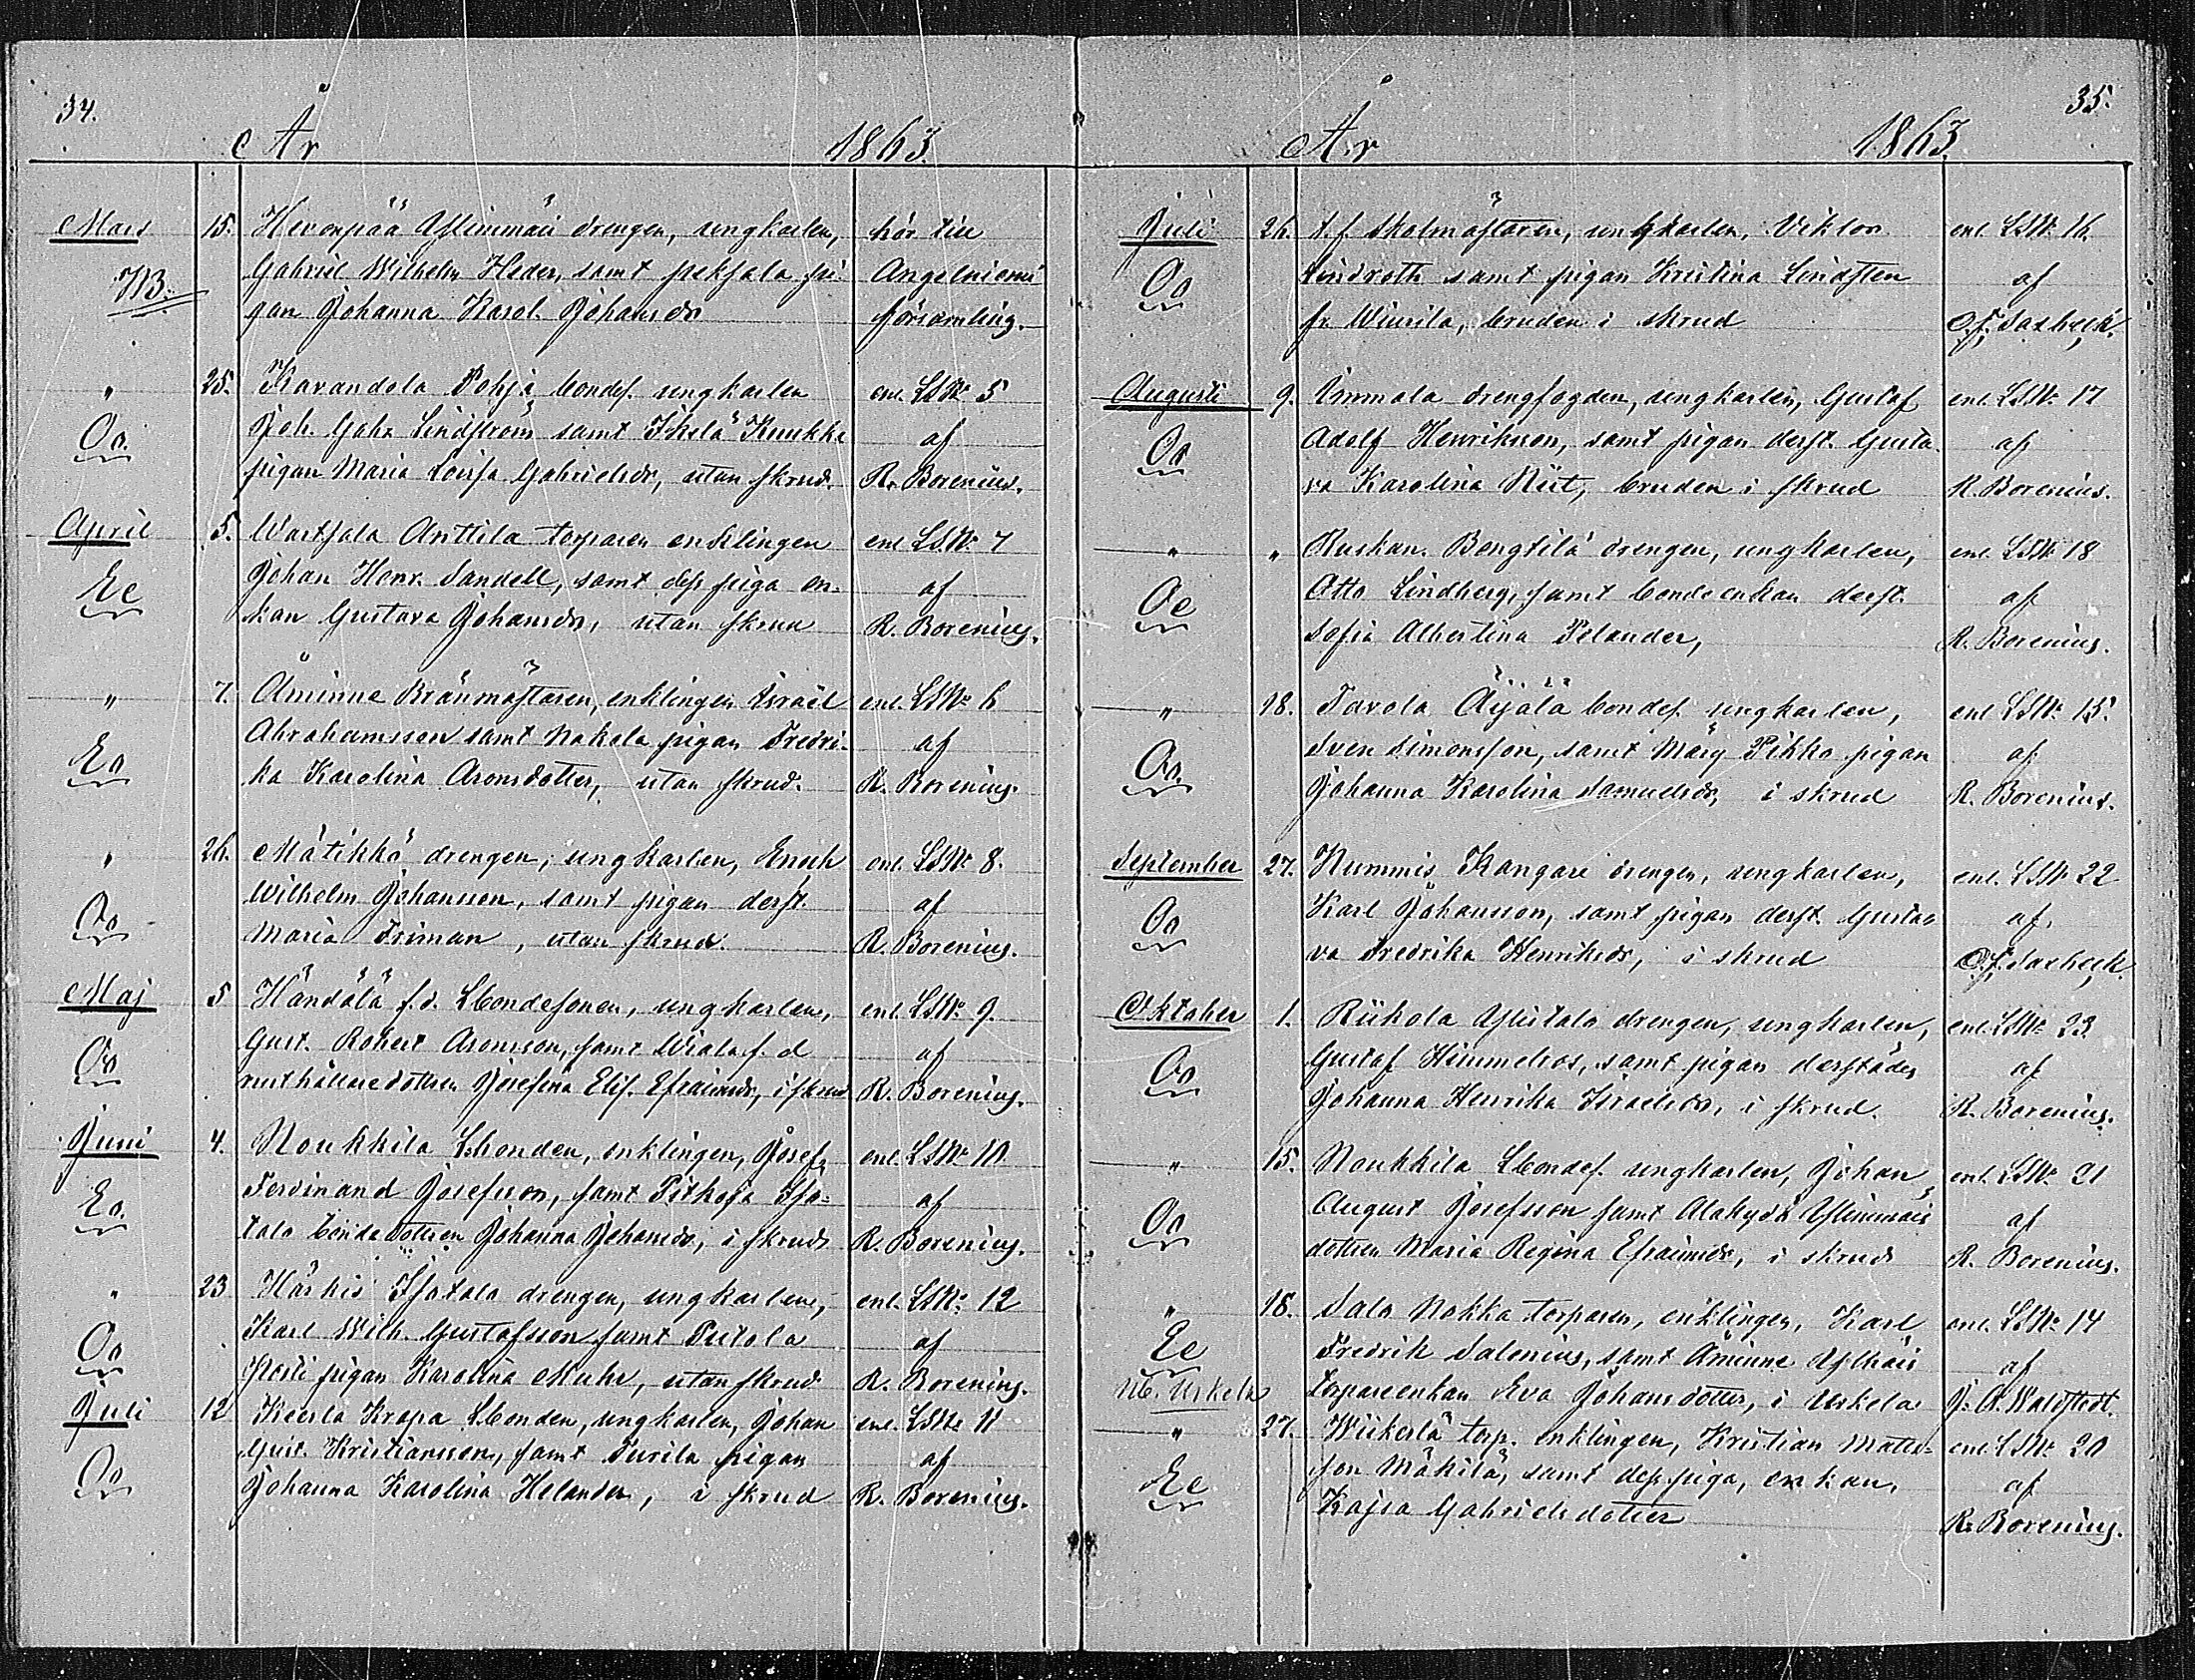 34.
År 1863.
Mars 15. Hevonpää Ylinimäü drengen, ungkarlen, hör till
NB. Gabriel Wilhelm Heder, samt peksala pi- Angelniemi
gan Johanna Karol. Johansdr församling.
" 25. Karandola Pohja bondes. ungkarlen enl. LSN: 5
Oo. Joh. Gabr. Lindström samt Ihela Kuukka af
pigan Maria Lovisa Gabrielsdr, utan skrud. R. Borenius.
April 5. Wartsala Anttila torparen enklingen enl LSN: 7
Ee Johan Henr. Sandell, samt dess piga en- af
kan Gustava Johansdr, utan skrud R. Borenius.
" 7. Åminne Bränmästaren, enklingen Israël enl. LSN: 6
Eo Abrahamsson samt Nokola pigan Fredri- af
ka Karolina Aronsdotter, utan skrud. R. Borenius.
" 26. Mätikkö drengen, ungkarlen, Enoch enl. LSN: 8.
Oo Wilhelm Johansson, samt pigan derst. af
Maria Friman, utan skrud. R. Borenius.
Maj 5 Händälä f.d. Lbondesonen, ungkarlen, enl. LSN: 9.
Oo Gust. Robert Aronsson, samt Wiala f. d af
rusthållaredottren Josefina Elis. Efraimsdr, i skrud R. Borenius.
Juni 4. Noukkila Lbonden, enklingen, Josef enl. LSN: 10
Eo. Ferdinand Josefsson, samt Pitkoja Iso- af
talo bondedottren Johanna Johansdr, i skrud R. Borenius.
" 23 Härkis Isotalo drengen, ungkarlen, enl. LSN: 12
Oo Karl Wilh. Gustafsson samt Putola af
pigan Karolina Muhr, utan skrud R. Borenius.
Juli 12 Keerla Krapa Lbonden, ungkarlen, Johan enl. LSN: 11
Oo Gust. Kristiansson, samt Turila pigan af
Johanna Karolina Helander, i skrud R. Borenius.
35.
År 1863.
Juli 26. t.f. Skolmästaren, ungkarlen, Viktor enl. LSN: 16.
Oo Lindroth samt pigan Kristina Lindsten af
fr. Wiurila, bruden i skrud C. F. Saxbeck.
Augusti 9. Immala drengfogden, ungkarlen, Gustaf enl. LSN: 17
Oo Adolf Henriksson, samt pigan derst. Gusta- af
va Karolina Riit, bruden i skrud R. Borenius.
" " Ruskan. Bengtilä drengen, ungkarlen, enl. LSN: 18
Oe Otto Lindberg, samt bondeenkan derst. af
Sofia Albertina Pelander, R. Borenius.
" 18. Tavola Äijälä bondes. ungkarlen, enl LSN: 15.
Oo. Sven Simonsson, samt Märy Pikko pigan af
Johanna Karolina Samuelsdr, i skrud R. Borenius.
September 27. Nummis Kangare drengen, ungkarlen, enl. LSN: 22
Oo Karl Johansson, samt pigan derst. Gusta- af
va Fredrika Henriksdr, i skrud C. F. Saxbeck.
Oktober 1. Riihola Ylitalo drengen, ungkarlen, enl. LSN: 23
Oo Gustaf Himmelros, samt pigan derstädes af
Johanna Henrika Israelsdr, i skrud. R. Borenius.
" 15. Noukkila Lbondes. ungkarlen, Johan enl. LSN: 21
Oo August Josefsson samt Alakydö Ylinimais af
dottren Maria Regina Efraimsdr, i skrud R. Borenius.
" 18. Salo Nokka torparen, enklingen, Karl enl. LSN: 14
Ee Fredrik Salenius, samt Åminne Ylhäis af
Nb. Uskela torpareenkan Eva Johansdotter, i Uskela J. A. Waldstedt.
" 27. Wiikerlä torp. enklingen, Kristian Matts- enl. LSN: 20
Ee son Mäkilä, samt dess piga, enkan, af
Kajsa Gabrielsdotter R. Borenius.